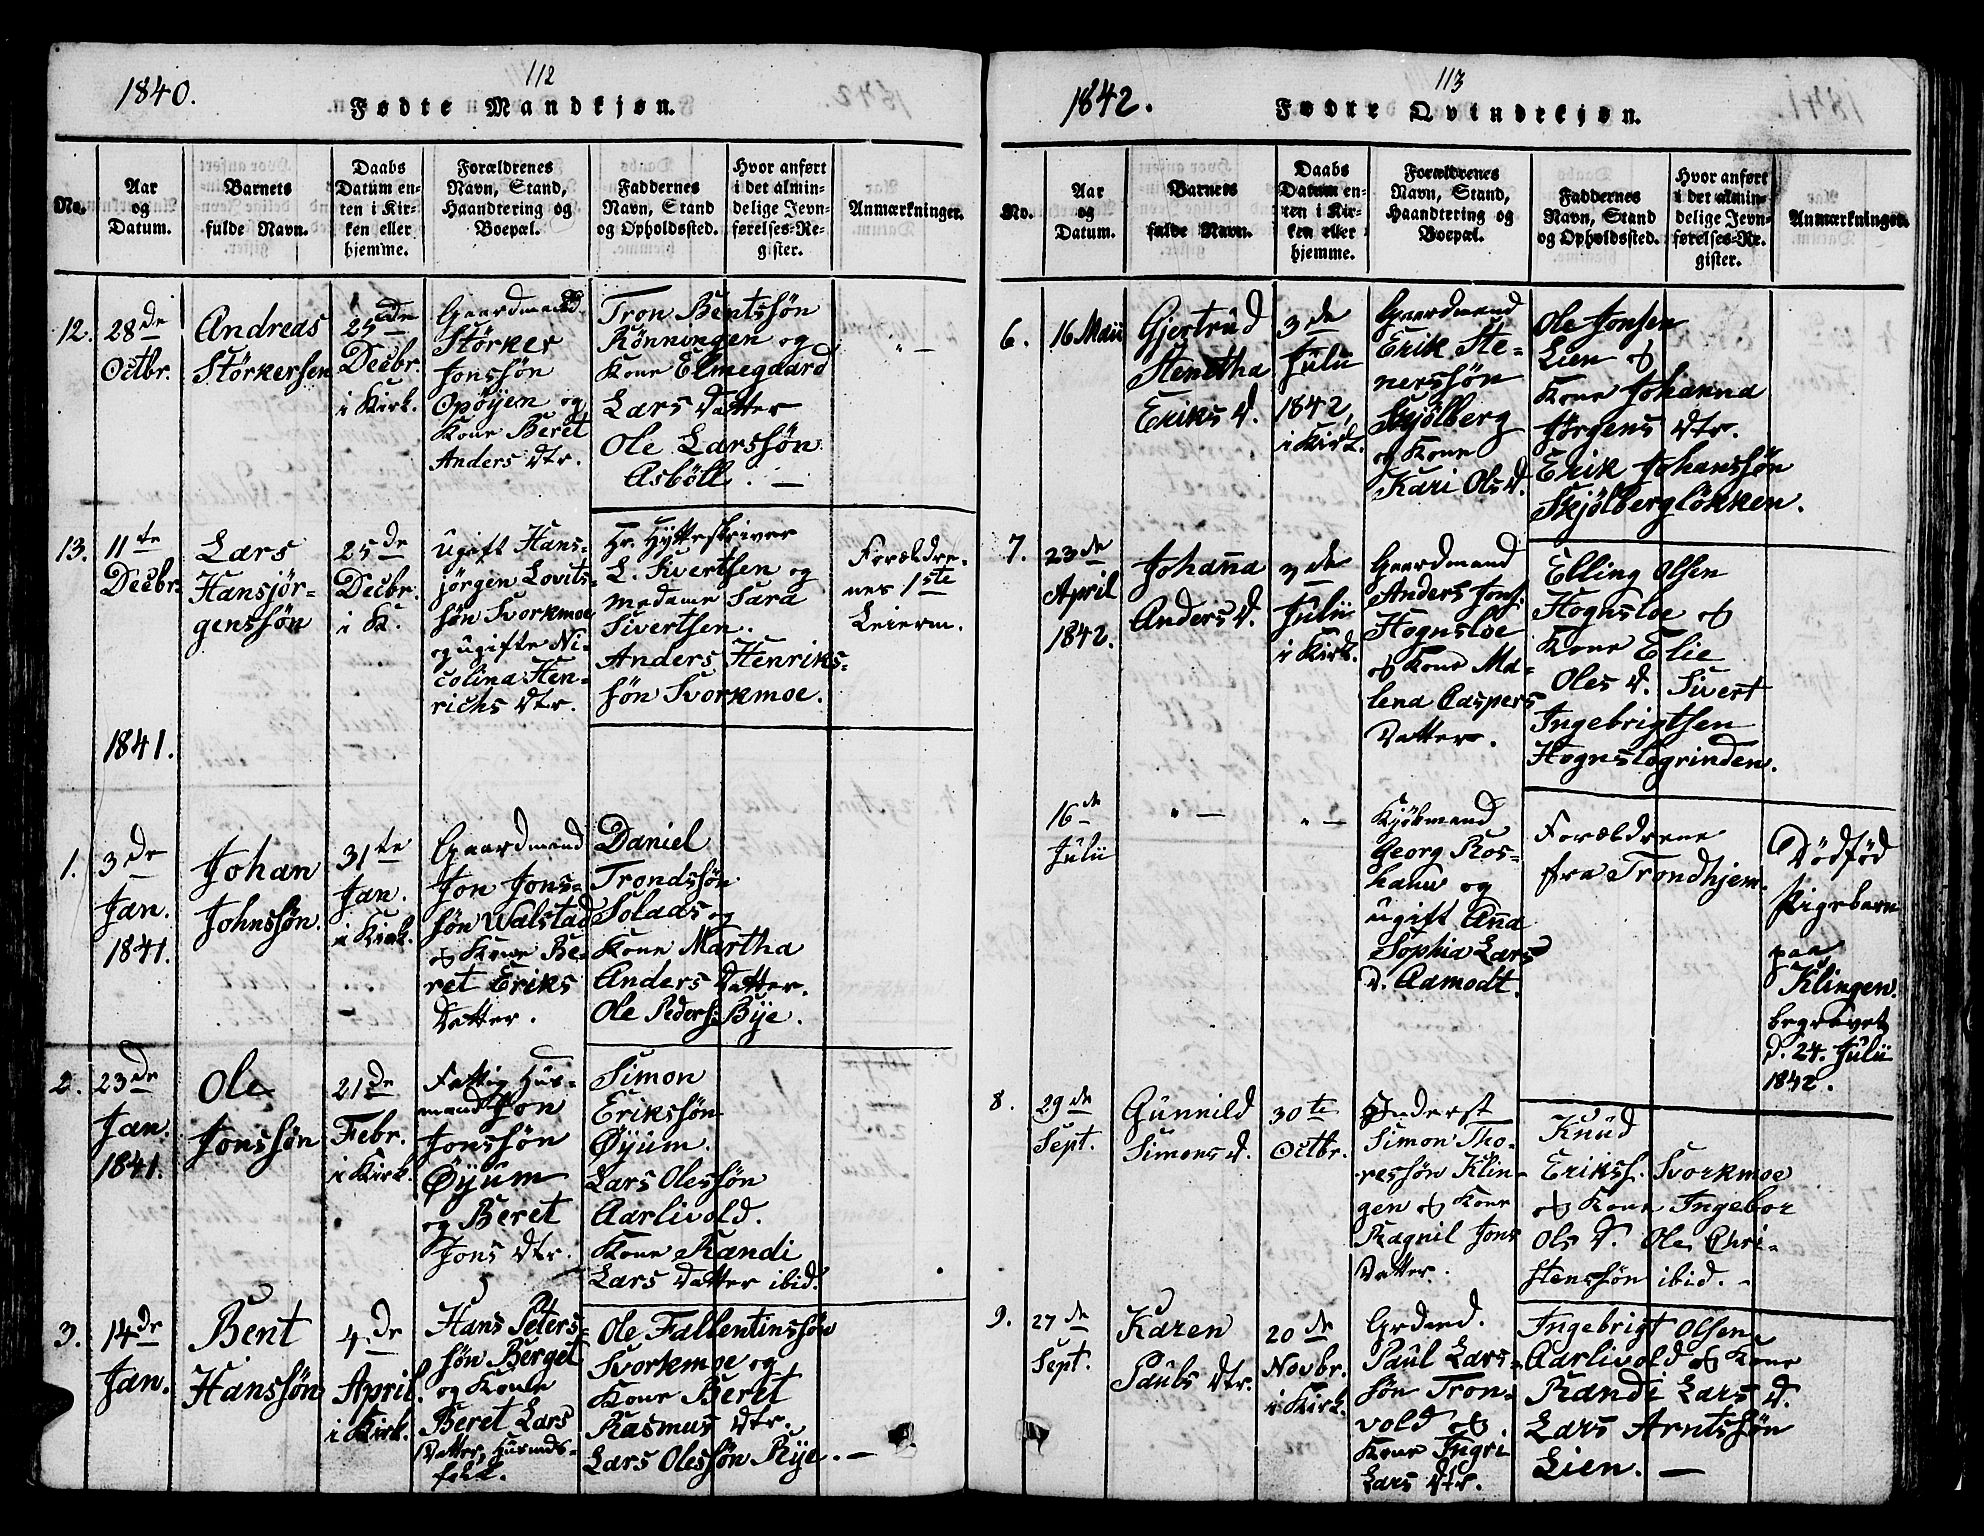 112
1840.
Fødte Mandkjøn.
No.
Aar
og
Datum.
Barnets
fulde Navn.
Daabs
Datum en-
ten i Kir-
ken eller
hjemme.
Forældrenes
Navn, Stand,
Haandtering og
Boepæl.
Faddernes
Navn, Stand
og Opholdssted.
Hvor anført
i det almin-
delige Jevn-
førelses-Re-
gister.
Anmærkninger.
12.
28de
Octbr.
Andreas
Størkersen
25de
Decbr.
i Kirk.
Gaardmand
Størker
Jonssøn
Opøyen og
Kone Beret
Anders Dtr.
Tron Bentssøn
Rønningen og
Kone Elmegaard
Lars Datter
Ole Larssøn
Asbøll. —
" —
13.
11te
Decbr.
Lars
Hansjør-
genssøn
25de
Decbr.
i K.
Ugift Hans-
jørgen Lovits-
søn Svorkmoe
og ugifte Ni-
colina Hen-
richs Dtr.
Hr. Hytteskriver
L. Sivertsen og
Madame Sara
Sivertsen.
Anders Henriks-
søn Svorkmoe.
Forældre-
nes 1ste
Leierm.
1841.
1.
3de
Jan.
1841.
Johan
Johnssøn.
31te
Jan.
i Kirk.
Gaardmand
Jon Jons-
søn Walstad
og Kone Be-
ret Eriks
Datter.
Daniel
Trondssøn
Solaas og
Kone Martha
Anders Datter.
Ole Peders: Bye.
2.
23de
Jan.
1841.
Ole
Jonssøn
21de
Febr.
i Kirk.
Fattig Hus-
mand Jon
Jonssøn
Øyum
og Beret
Jons Dtr.
Simon
Erikssøn
Øyum.
Lars Olessøn
Aarlivold.
Kone Randi
Lars Datter ibid.
3.
14de
Jan.
Bent
Hanssøn
4de
April.
i Kirk.
Hans Peters-
søn Berget
og Kone
Beret Lars
Datter, Husmds-
folk.
Ole Fallentinssøn
Svorkmoe og
Kone Beret
Rasmus Dtr.
Lars Olessøn Rye. —
113
1842.
Fødte Qvindekjøn.
No.
Aar
og
Datum.
Barnets
fulde Navn.
Daabs
Datum en-
ten i Kir-
ken eller
hjemme.
Forældrenes
Navn, Stand,
Haandtering og
Boepæl.
Faddernes
Navn, Stand
og Opholdssted.
Hvor anført
i det almin-
delige Jevn-
førelses-Re-
gister.
Anmærkninger.
6.
16 Maii
Gjertrud
Stenetha
Eriks D.
3de
Julii
1842,
i Kirk.
Gaardmand
Erik Ste-
nerssøn
Skjølberg
og Kone
Kari Ols D.
Ole Jonsen
Lien og
Kone Johanna
Jørgens Dtr.
Erik Johanssøn
Skjølbergløkken.
7.
23de
April
1842.
Johanna
Anders D.
3de
Julii
i Kirk.
Gaardmand
Anders Jons.
Hognsloe
og Kone Ma-
lena Caspers
Datter.
Elling Olsen
Hognsloe og
Kone Elie
Oles D. Sivert
Ingebrigtsen
Hognsløgrinden.
16de
Julii
" —
" —
Kjøbmand
Georg Ros-
og
ugift Anna
Sophia Lars
D. Aamodt.
Forældrene
fra Trondhjem.
Dødfød
Pigebarn
paa
Klingen.
begravet
d. 24. Julii
1842.
8.
29de
Sept.
Gunnild
Simons D.
30te
Octbr.
Inderst
Simon Tho-
ressøn Klin-
gen og Kone
Ragnil Jons
Datter.
Knud
Erikss. Svorkmoe
og Kone Ingebor
Ols D. Ole Chri-
stenssøn ibid. -
9.
27de
Sept.
Karen
Pauls Dtr.
20de
Novbr.
i Kirk.
Grdmd.
Paul Lars-
søn Tron-
vold og
Kone Ingri
Lars Dtr.
Ingebrigt Olsen
Aarlivold og Kone
Randi Lars D.
Lars Arntssøn
Lien. —